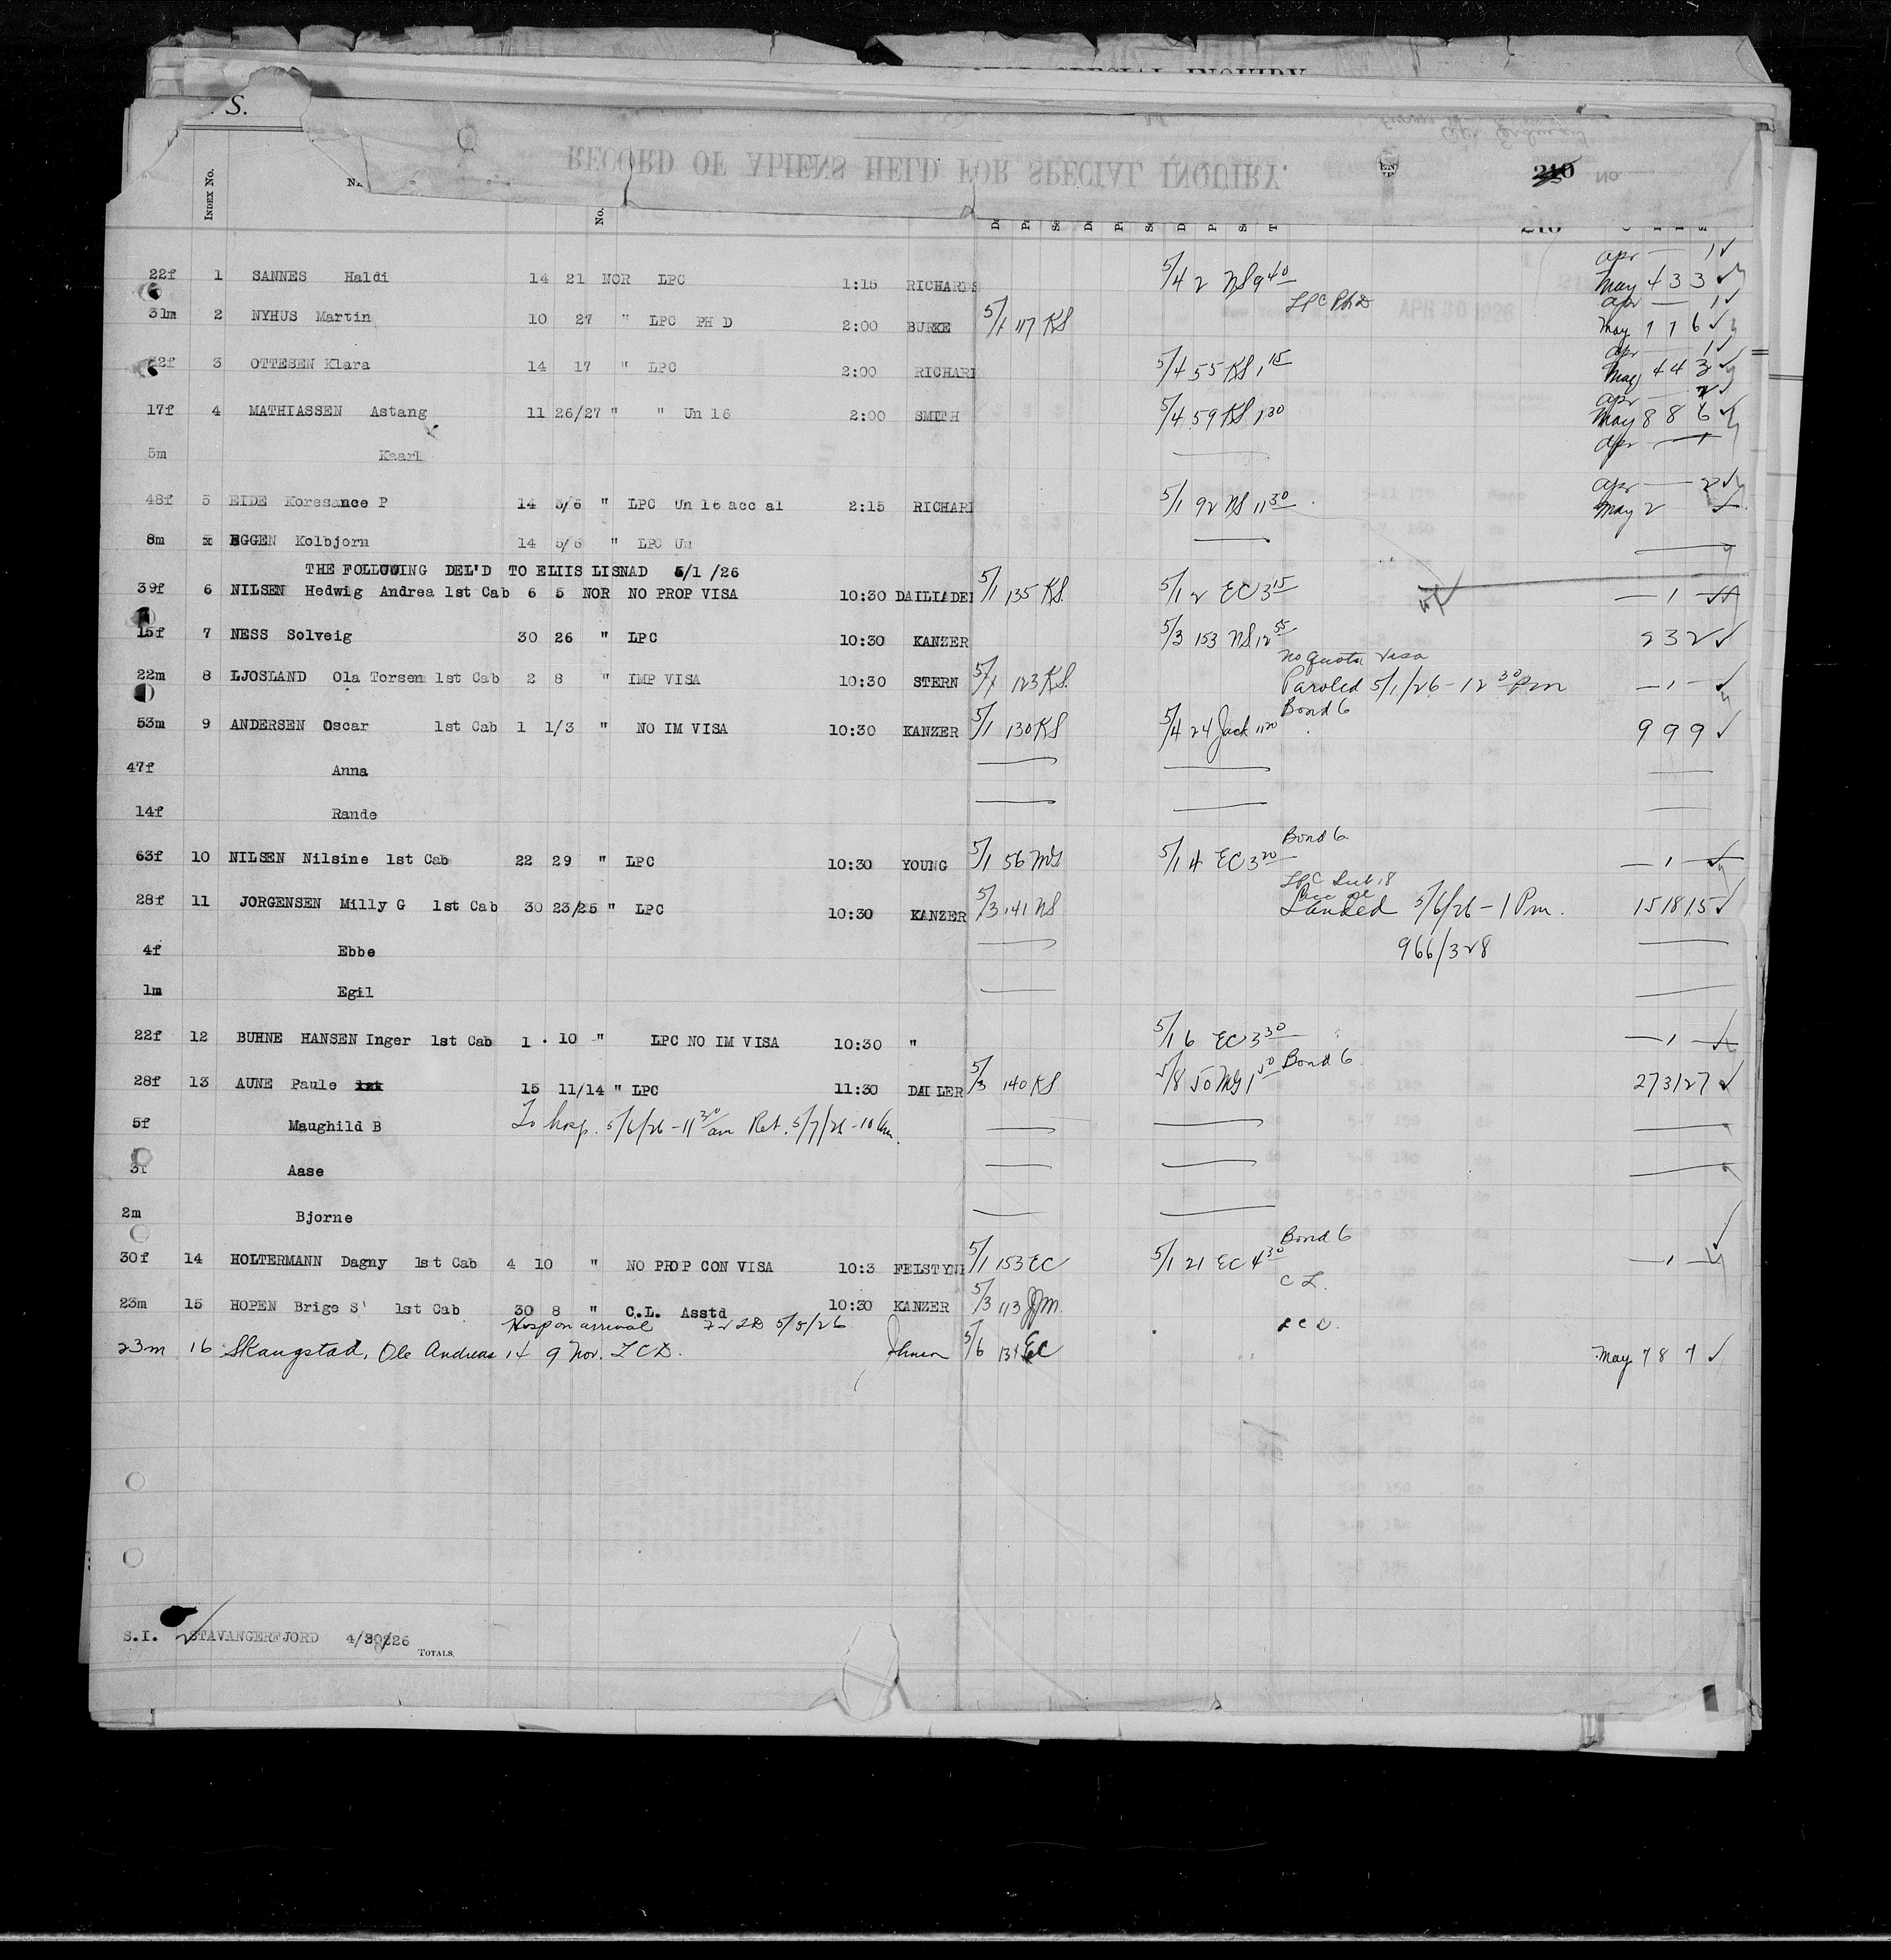 SPECIAL INQUIRY
S.
RECORD OF ALIENS HELD FOR SPECIAL INQUIRY.
210 No.
INDEX No.
No.
210
apr — 1 ✓
22f 1 SANNES Haldi 14 21 NOR LPC 1:15 RICHARDS 5/4 2 NS 9 40 May 4 3 3 ✓
LPC Ph D apr — 1 ✓
31m 2 NYHUS Martin 10 27 " LPC PH D 2:00 BURKE 5/1 117 KS May 7 7 6 ✓
apr — 1 ✓
22f 3 OTTESEN Klara 14 17 " LPC 2:00 RICHARD 5/4 55 KS 1 15 May 4 4 3 ✓
apr — 2 ✓
17f 4 MATHIASSEN Astang 11 26/27 " " Un 16 2:00 SMITH 5/4 59 KS 1 30 May 8 8 6 ✓
apr — 1
5m Kaarl
apr — 2 ✓
48f 5 EIDE Koresance P 14 5/6 " LPC Un 16 acc al 2:15 RICHARD 5/1 92 NS 11 30 May 2 ✓
8m x EGGEN Kolbjorn 14 5/6 " LPC Un
THE FOLLOWING DEL'D TO ELIIS LISNAD 5/1 /26
39f 6 NILSEN Hedwig Andrea 1st Cab 6 5 NOR NO PROP VISA 10:30 DAILIADER 5/1 135 KS. 5/1 2 EC 3 15 — 1 —
15f 7 NESS Solveig 30 26 " LPC 10:30 KANZER 5/3 153 NS 12 55 2 3 2 ✓
No Quota Visa
22m 8 LJOSLAND Ola Torsem 1st Cab 2 8 " IMP VISA 10:30 STERN 5/1 123 KS. Paroled 5/1/26 - 12 30 Pm — 1 — ✓
Bond 6
53m 9 ANDERSEN Oscar 1st Cab 1 1/3 " NO IM VISA 10:30 KANZER 5/1 130 KS 5/4 24 Jack 11 20 9 9 9 ✓
47f Anna
14f Rande
Bond 6
63f 10 NILSEN Nilsine 1st Cab 22 29 " LPC 10:30 YOUNG 5/1 56 MG 5/1 4 EC 3 20 — 1 —
LPC Sub 18
28f 11 JORGENSEN Milly G 1st Cab 30 23/25 " LPC 10:30 KANZER 5/3 141 NS Landed 5/6/26 - 1 Pm. 15 18 15 ✓
4f Ebbe 966/328
1m Egil
22f 12 BUHNE HANSEN Inger 1st Cab 1 10 " LPC NO IM VISA 10:30 " 5/1 6 EC 3 30 — 1 —
Bond 6
28f 13 AUNE Paule 1st 15 11/14 " LPC 11:30 DAILER 5/3 140 KS 5/8 50 MG 1 50 27 31 27 ✓
5f Maughild B To hosp. 5/6/26 - 11 30 am Ret. 5/7/26 - 10 am.
3f Aase
2m Bjorne
Bond 6
30f 14 HOLTERMANN Dagny 1st Cab 4 10 " NO PROP CON VISA 10:3 FELSTYNE 5/1 153 EC 5/1 21 EC 4 30 — 1 —
C L.
23m 15 HOPEN Brige S' 1st Cab 30 8 " C.L. Asstd 10:30 KANZER 5/3 113 JJM.
Hosp on arrival 5/5/26
23m 16 Skaugstad, Ole Andreas 14 9 Nor. LCD. Johnson 5/6 134 EC May 7 8 7 ✓
S.I. STAVANGERFJORD 4/30/26
TOTALS,